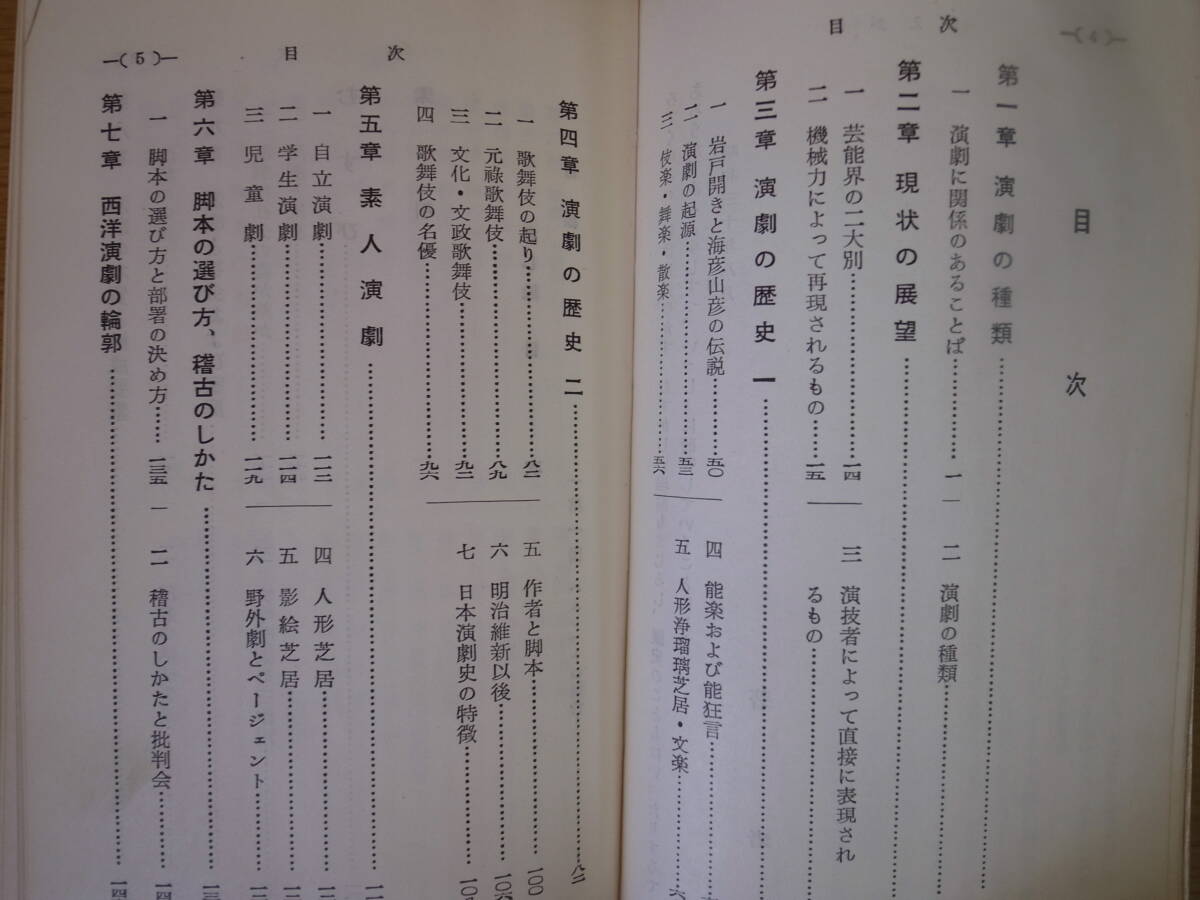 —( 4 )—
目　次
目　次
第一章　演劇の種類……
一　演劇に関係のあることば……一
二　演劇の種類……
第二章　現状の展望……
一　芸能界の二大別……一四
二　機械力によって再現されるもの……一五
三　演技者によって直接に表現され
るもの……
第三章　演劇の歴史　一……
一　岩戸開きと海彦山彦の伝説……五〇
二　演劇の起源……五三
三　伎楽・舞楽・散楽……五六
四　能楽および能狂言……
五　人形浄瑠璃芝居・文楽……六
—( 5 )—
目　次
第四章　演劇の歴史　二……八二
一　歌舞伎の起り……八二
二　元禄歌舞伎……八九
三　文化・文政歌舞伎……九二
四　歌舞伎の名優……九六
五　作者と脚本……一〇〇
六　明治維新以後……一〇六
七　日本演劇史の特徴……一〇八
第五章　素人演劇……一一
一　自立演劇……一一三
二　学生演劇……一一四
三　児童劇……一一九
四　人形芝居……一二
五　影絵芝居……一二
六　野外劇とページェント……一二
第六章　脚本の選び方、稽古のしかた……一三
一　脚本の選び方と部署の決め方……一三五
二　稽古のしかたと批判会……一四
第七章　西洋演劇の輪郭……一四